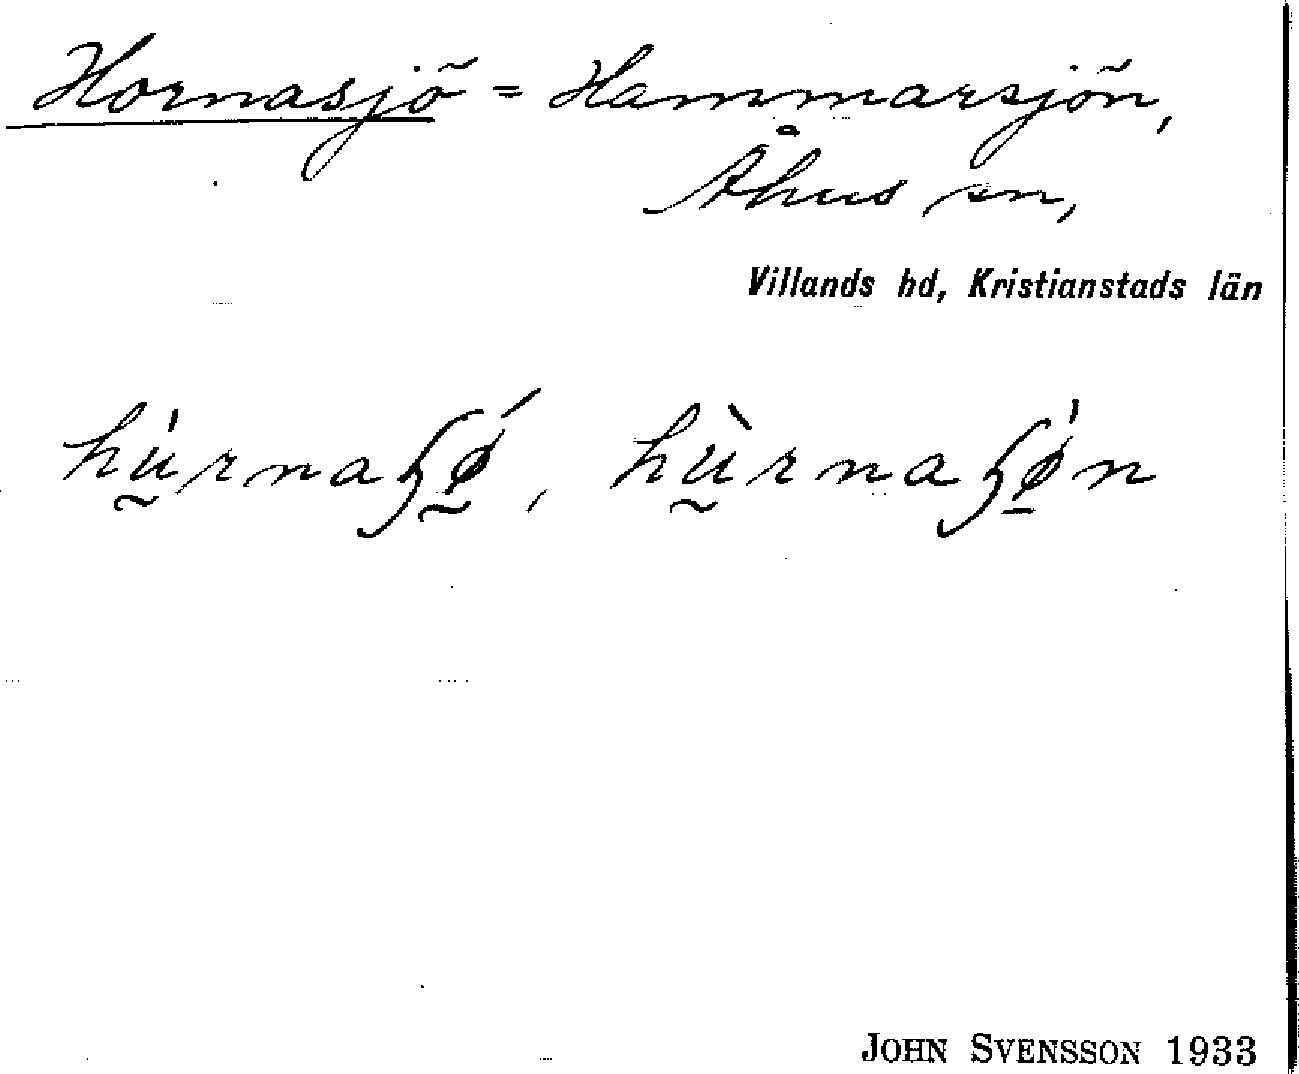 Hornasjö = Hammarsjön,
Åhus sn,
Villands hd, Kristianstads län
JOHN SVENSSON 1933